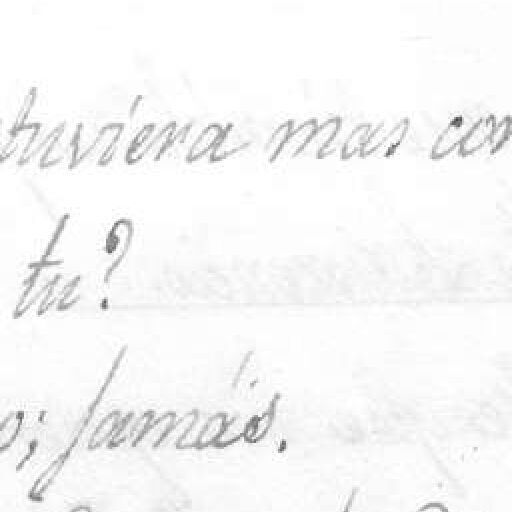 tuviera mas con
tu?
o; Jamás.